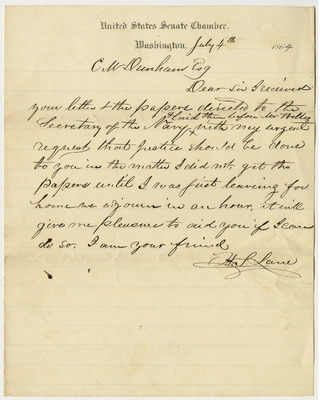 United States Senate Chamber.
Washington, July 4th 1864
C. M Dunham Esq
Dear Sir I received
your letter & the papers directed to the
& laid them before Mr Welles
Secretary of the Navy with my urgent
request that Justice should be done
to you in the matter I did not get the
papers until I was just leaving for
home we adjourn in an hour, it will
give me pleasure to aid you if I can
do so. I am your friend
H S Lane